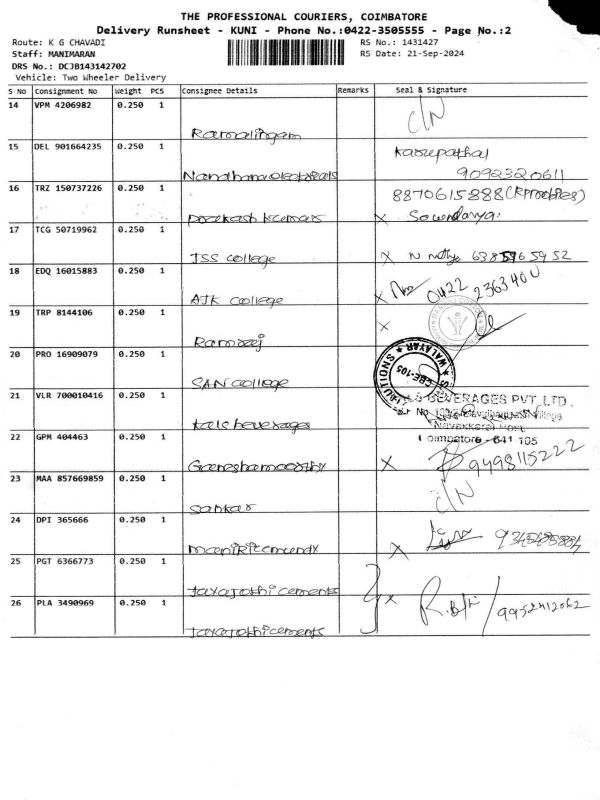 THE PROFESSIONAL COURIERS, COIMBATORE
Delivery Runsheet - KUNI - Phone No.:0422-3505555 - Page No.:2
Route: K G CHAVADI RS No.: 1431427
Staff: MANIMARAN RS Date: 21-Sep-2024
DRS No.: DCJB143142702
Vehicle: Two Wheeler Delivery
S No Consignment No Weight PCS Consignee Details Remarks Seal & Signature
14 VPM 4206982 0.250 1 C/N
Ramalingam
15 DEL 901664235 0.250 1
9092320611
16 TRZ 150737226 0.250 1 8870615888
Sowndarya
17 TCG 50719962 0.250 1
JSS college
18 EDQ 16015883 0.250 1 0422 2363400
AJK college
19 TRP 8144106 0.250 1
Ramreej
20 PRO 16909079 0.250 1 WALAYAR CBE-105
SAN college
21 VLR 700010416 0.250 1 BEVERAGES PVT. LTD.,
kals beverages
22 GPM 404463 0.250 1 Coimbatore - 641 105
Ganeshamoorthy 9498115222
23 MAA 857669859 0.250 1 C/N
Sankar
24 DPI 365666 0.250 1
25 PGT 6366773 0.250 1
Jayajothi cements
26 PLA 3490969 0.250 1 9952412062
Jayajothi cements